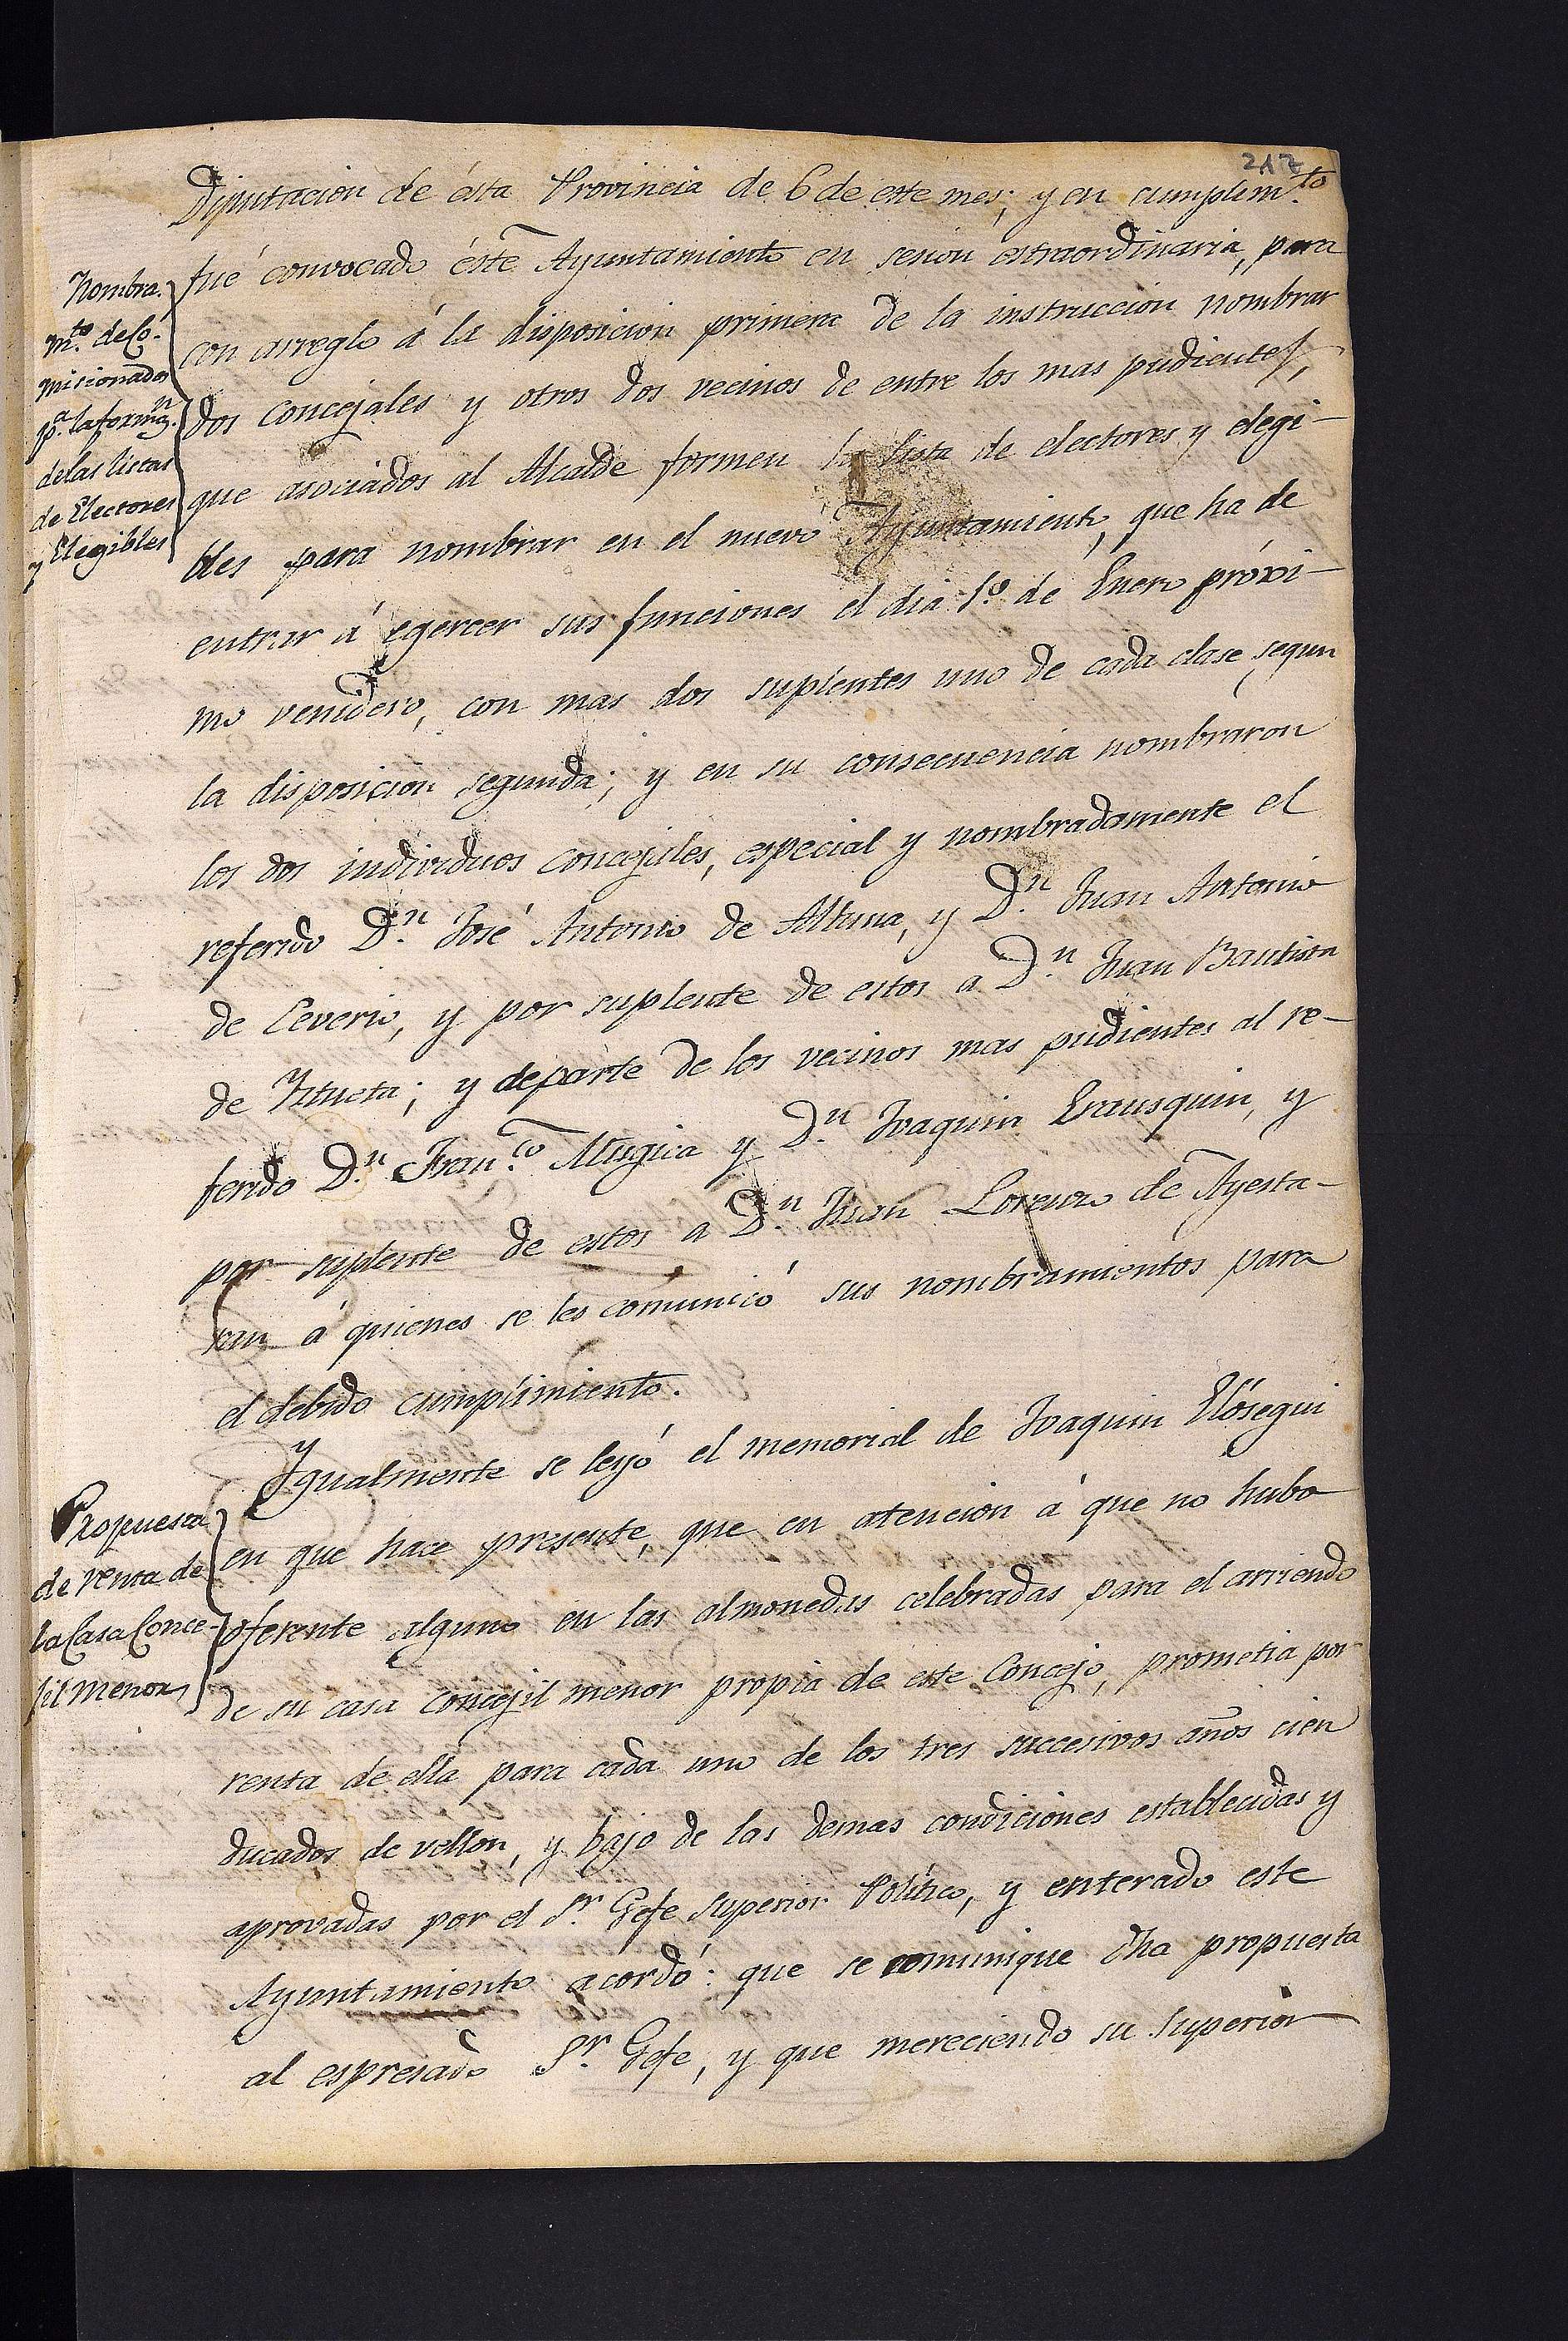 217
Diputacion de ésta Provincia de 6 de este mes; y en cumplim.to
fué convocado éste Ayuntamiento en sesion estraordinaria, para
con arreglo á la disposicion primera de la instruccion nombrar
dos Concejales y otros dos vecinos de entre los mas pudientes,
que asociados al Alcalde formen la lista de electores y elegi-
bles para nombrar en el nuevo Ayuntamiento, que ha de
entrar á egercer sus funciones el dia 1.o de Enero próxi-
mo venidero, con mas dos suplentes uno de cada clase, segun
la disposicion segunda; y en su consecuencia nombraron
los dos individuos concejales, especial y nombradamente el
referido D.n José Antonio de Altuna, y D.n Juan Antonio
de Ceverio, y por suplente de estos a D.n Juan Bautista
de Ytueta; y de parte de los vecinos mas pudientes al re-
ferido D.n Fran.co Mugica y D.n Joaquin Erausquin, y
por suplente de estos a D.n Juan Lorenzo de Ayesta-
ran á quienes se les comunicó sus nombramientos para
el debido cumplimiento.
Nombra.
m.to de Co-
misionados
p.a la formn.
de las listas
de Electores
y Elegibles
Ygualmente se leyó el memorial de Joaquin Elósegui
en que hace presente, que en atencion á que no hubo
oferente alguno en las almonedas celebradas para el arriendo
de su casa concejil menor propia de este Concejo, prometia por
renta de ella para cada uno de los tres succesivos años cien
ducados de vellon, y bajo de las demas condiciones establecidas y
aprovadas por el S.r Gefe Superior Político, y enterado este
Ayuntamiento acordó: que se comunique dha propuesta
al espresado S.r Gefe, y que mereciendo su Superior
Propuesta
de renta de
la Casa Conce-
jil menor